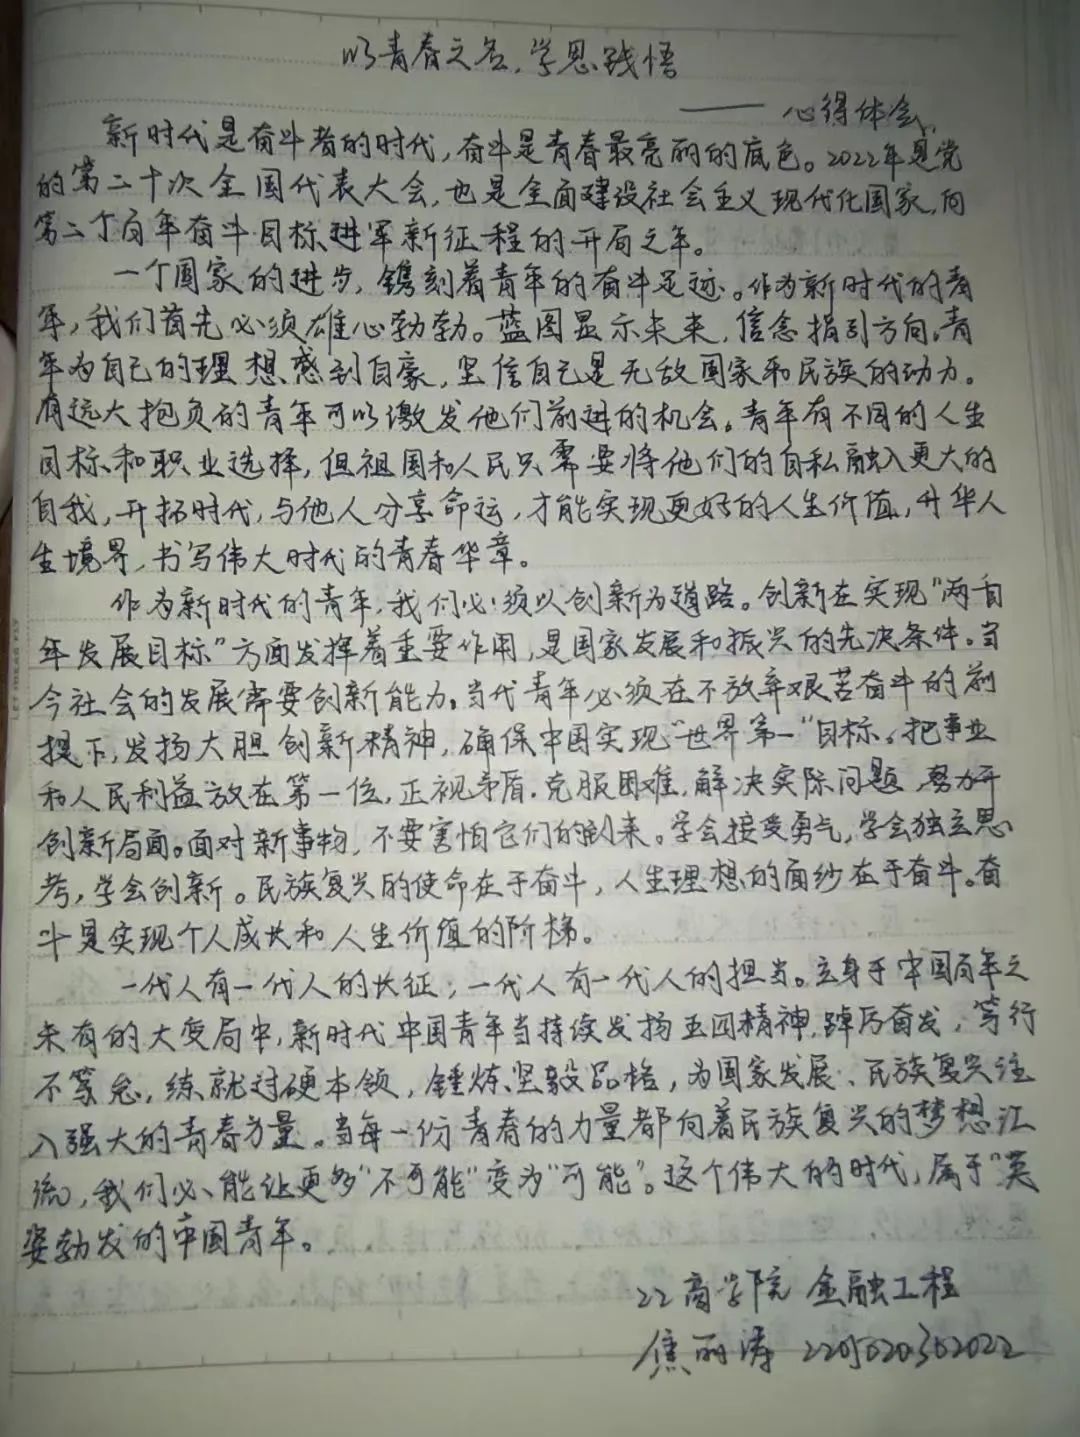 以青春之名，学思践悟
—— 心得体会
新时代是奋斗者的时代，奋斗是青春最亮丽的底色。2022年是党
的第二十次全国代表大会，也是全面建设社会主义现代化国家，向
第二个百年奋斗目标进军新征程的开局之年。
一个国家的进步，镌刻着青年的奋斗足迹。作为新时代的青
年，我们首先必须雄心勃勃。蓝图显示未来，信念指引方向。青
年为自己的理想感到自豪，坚信自己是无敌国家和民族的动力。
有远大抱负的青年可以激发他们前进的机会。青年有不同的人生
目标和职业选择，但祖国和人民只需要将他们的自私融入更大的
自我，开拓时代，与他人分享命运，才能实现更好的人生价值，升华人
生境界，书写伟大时代的青春华章。
作为新时代的青年，我们必须以创新为道路。创新在实现“两百
年发展目标”方面发挥着重要作用，是国家发展和振兴的先决条件。当
今社会的发展需要创新能力。当代青年必须在不放弃艰苦奋斗的前
提下，发扬大胆创新精神，确保中国实现“世界第一”目标。把事业
和人民利益放在第一位，正视矛盾，克服困难，解决实际问题，努力开
创新局面。面对新事物，不要害怕它们的到来。学会接受勇气，学会独立思
考，学会创新。民族复兴的使命在于奋斗，人生理想的面纱在于奋斗。奋
斗是实现个人成长和人生价值的阶梯。
一代人有一代人的长征，一代人有一代人的担当。立身于中国百年之
未有的大变局中，新时代中国青年当持续发扬五四精神，踔厉奋发，笃行
不怠，练就过硬本领，锤炼坚毅品格，为国家发展、民族复兴注
入强大的青春力量。当每一份青春的力量都向着民族复兴的梦想汇
流，我们必能让更多“不可能”变为“可能”。这个伟大的时代，属于“英
姿勃发的中国青年。
22商学院 金融工程
焦丽涛 2205020302022